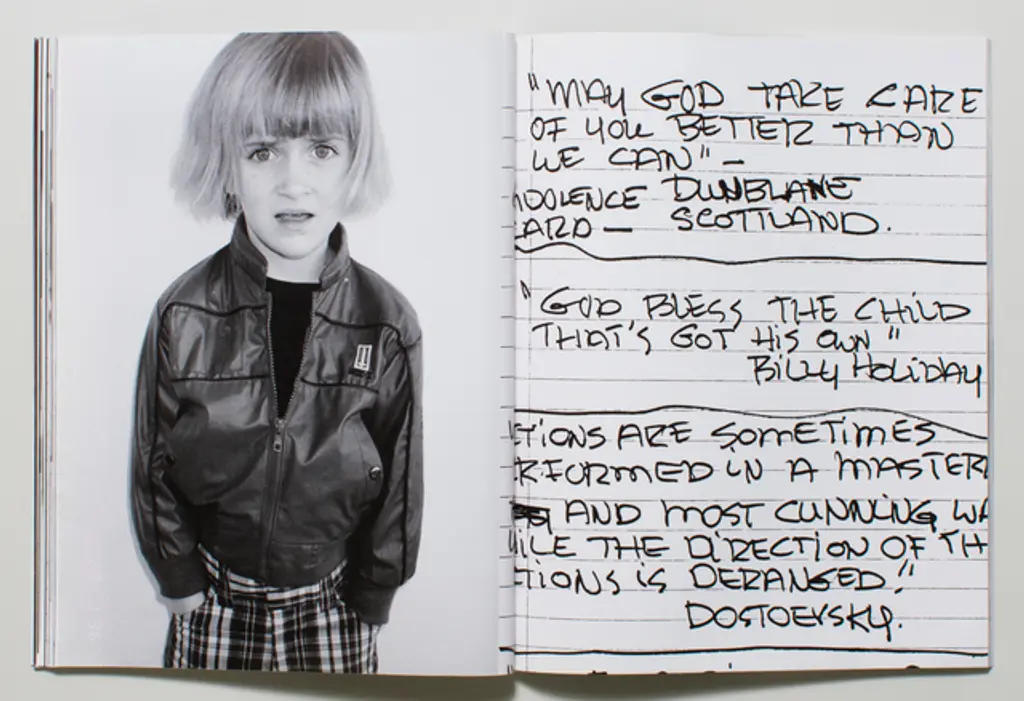 "MAY GOD TAKE CARE
OF YOU BETTER THAN
WE CAN" –
NDOLENCE DUNBLANE
CARD – SCOTTLAND.
"GOD BLESS THE CHILD
THAT'S GOT HIS OWN"
BILLY HOLIDAY
CTIONS ARE SOMETIMES
RFORMED IN A MASTER
AND MOST CUNNING WA
HILE THE DIRECTION OF TH
TIONS IS DERANGED."
DOSTOEVSKY.